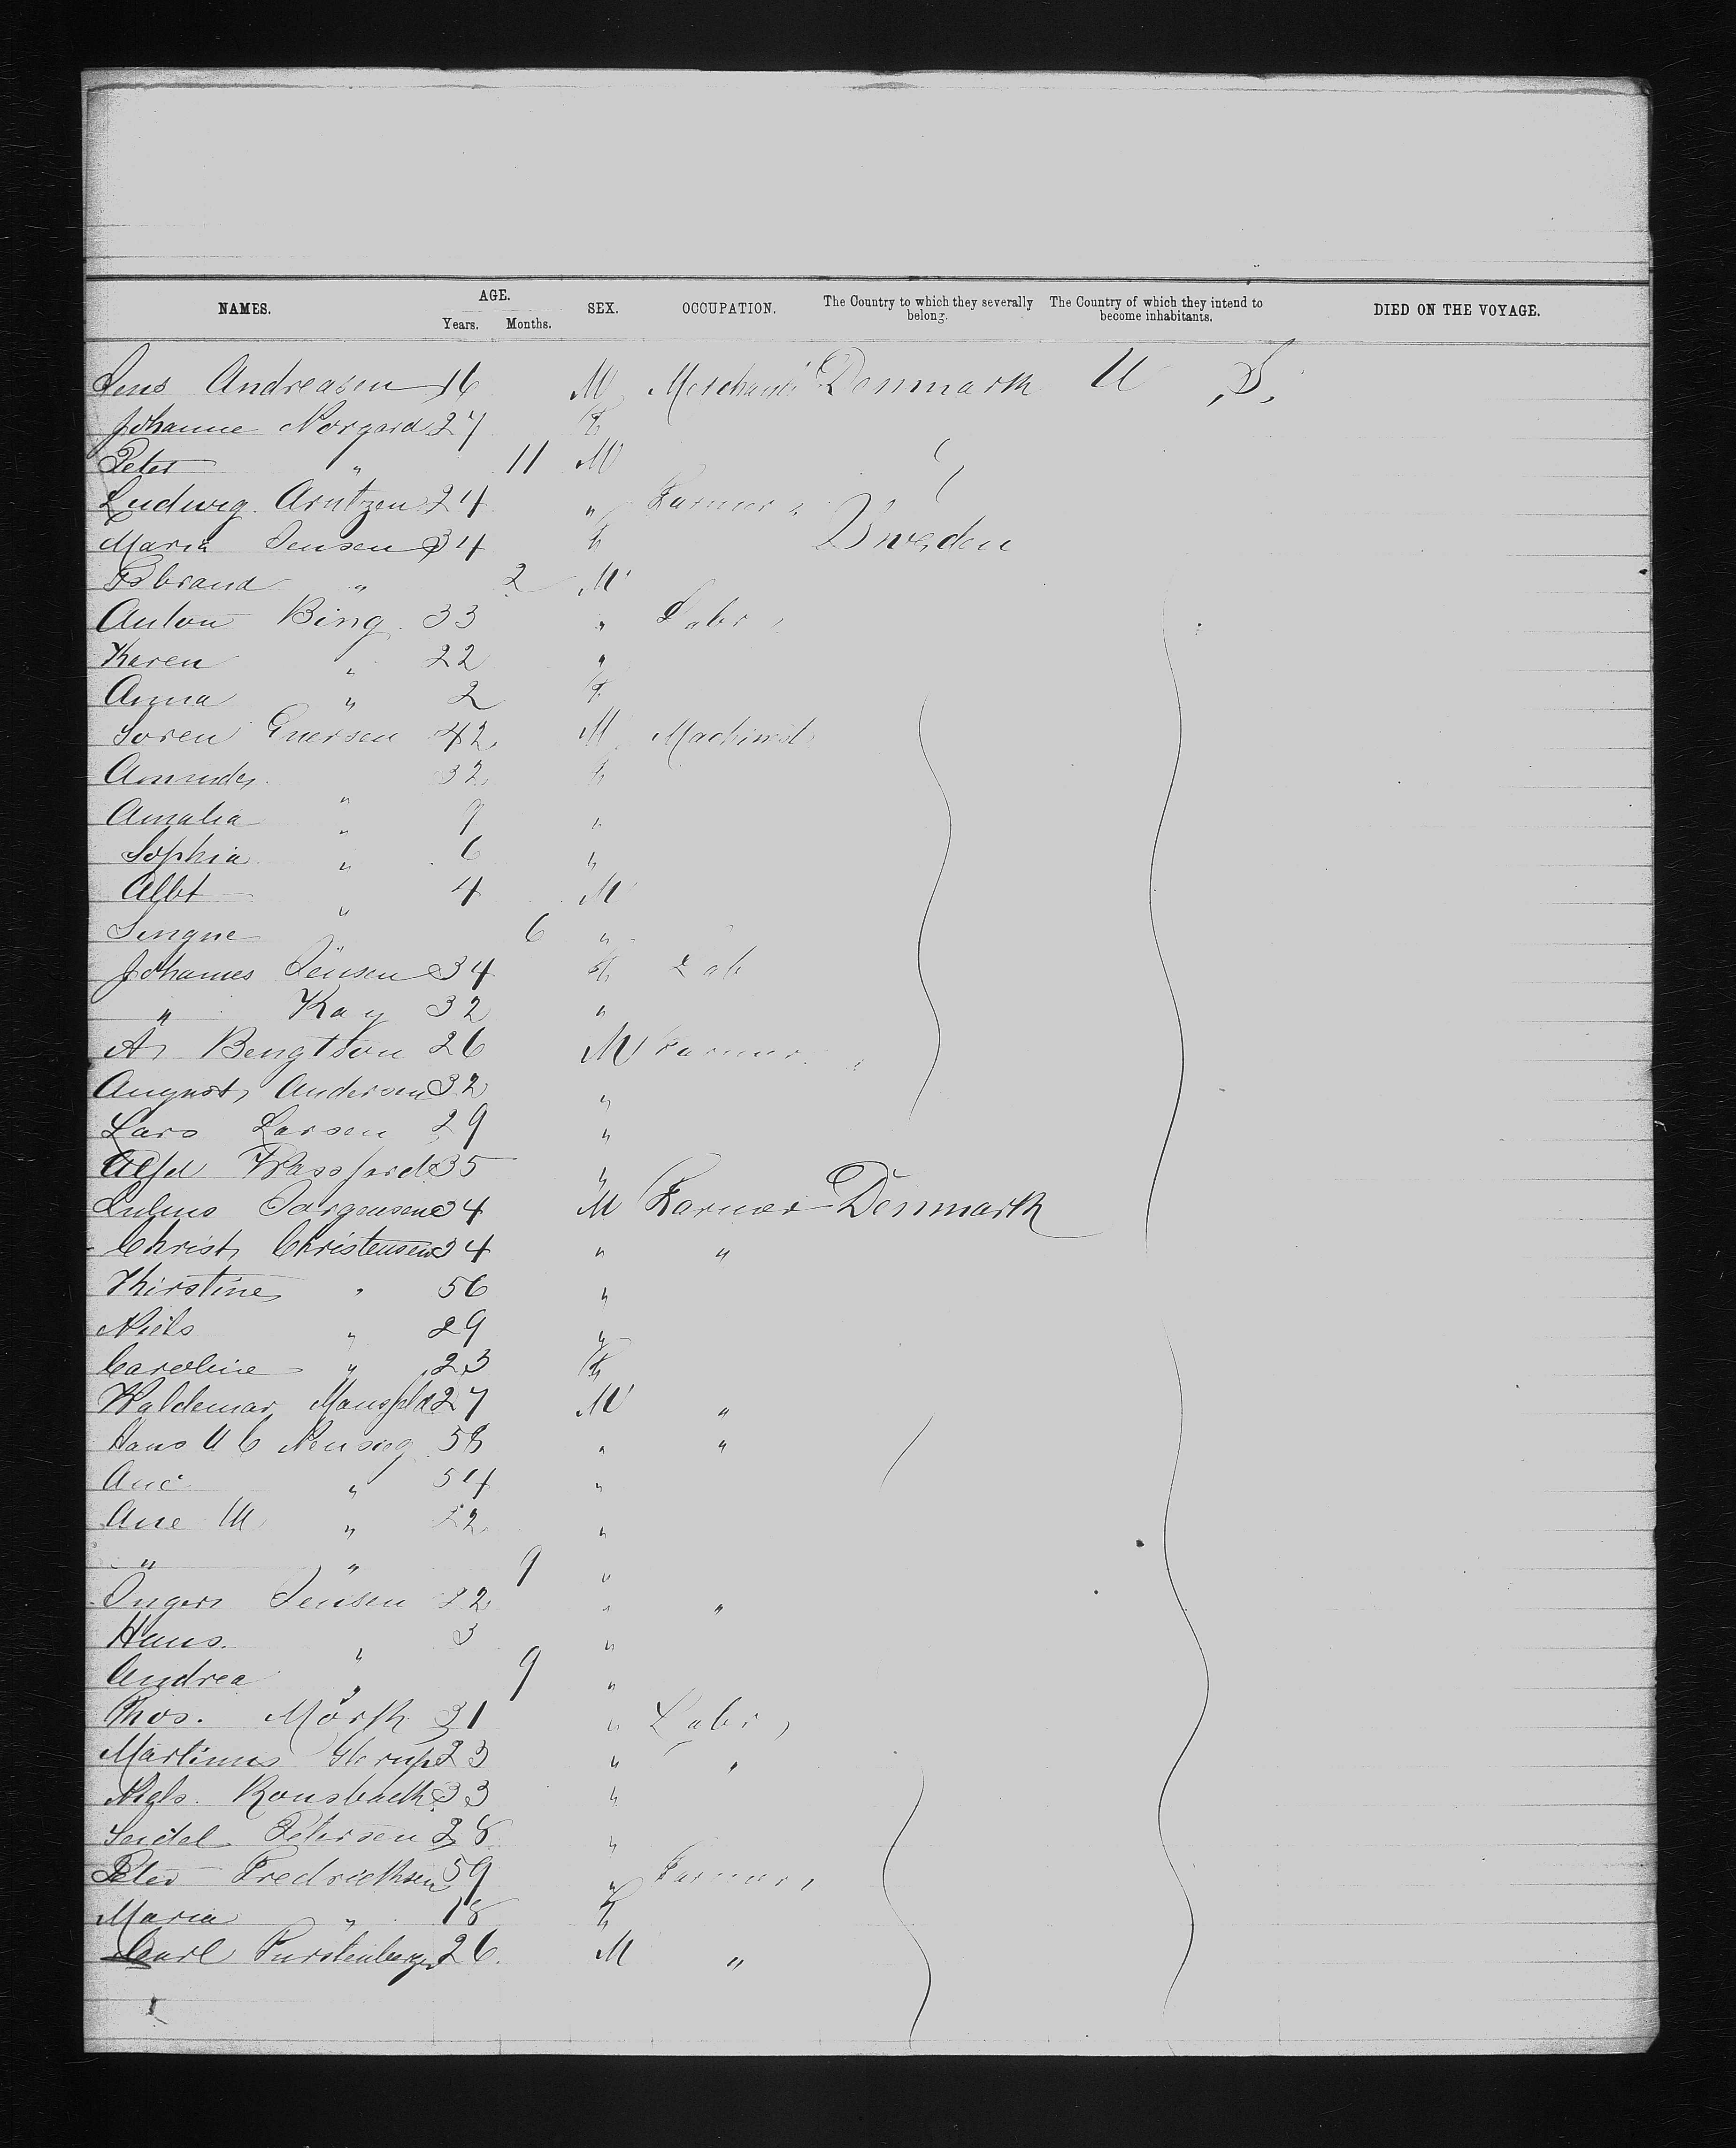 NAMES. AGE. Years. Months. SEX. OCCUPATION. The Country to which they severally belong. The Country of which they intend to become inhabitants. DIED ON THE VOYAGE.
Jens Andreasen 16 M Merchant Denmark U S.
Johanne Norgard 27 F
Peter " 11 M
Ludwig Arntzen 24 " Farmer
Maria Jensen 34 F Sweden
" 2 M
Anton Bing 33 " Labr
Karen " 22 "
Anna " 2 F
Soren 42 M Machinist
" 32 F
Amalia " 9 "
Sophia " 6 "
Albt " 4 M
Singne " 6 "
Johannes Jensen 34 Lab
" Kay 32 "
A Bengtson 26 M Farmer
August Andersen 32 "
Lars Larsen 29 "
Alfd 35 "
Julius Jorgensen 34 M Farmer Denmark
Christ Christensen 34 " "
Kirstine " 56 "
Niels " 29 "
Caroline " 23 F
Waldemar Mansfeld 27 M "
Hans 58 " "
Ane " 54 "
Ane M " 22 "
" " 9 "
Inger Jensen 22 " "
Hans " 3 "
Andrea " 9 "
Thos. Mörk 31 " Labr
Martinus 23 " "
Niels. Ronsbach 33 "
Petersen 28 "
Peter Fredricksen 59 " Farmer
Maria " 18 F
Carl Furstenberger 26. M "